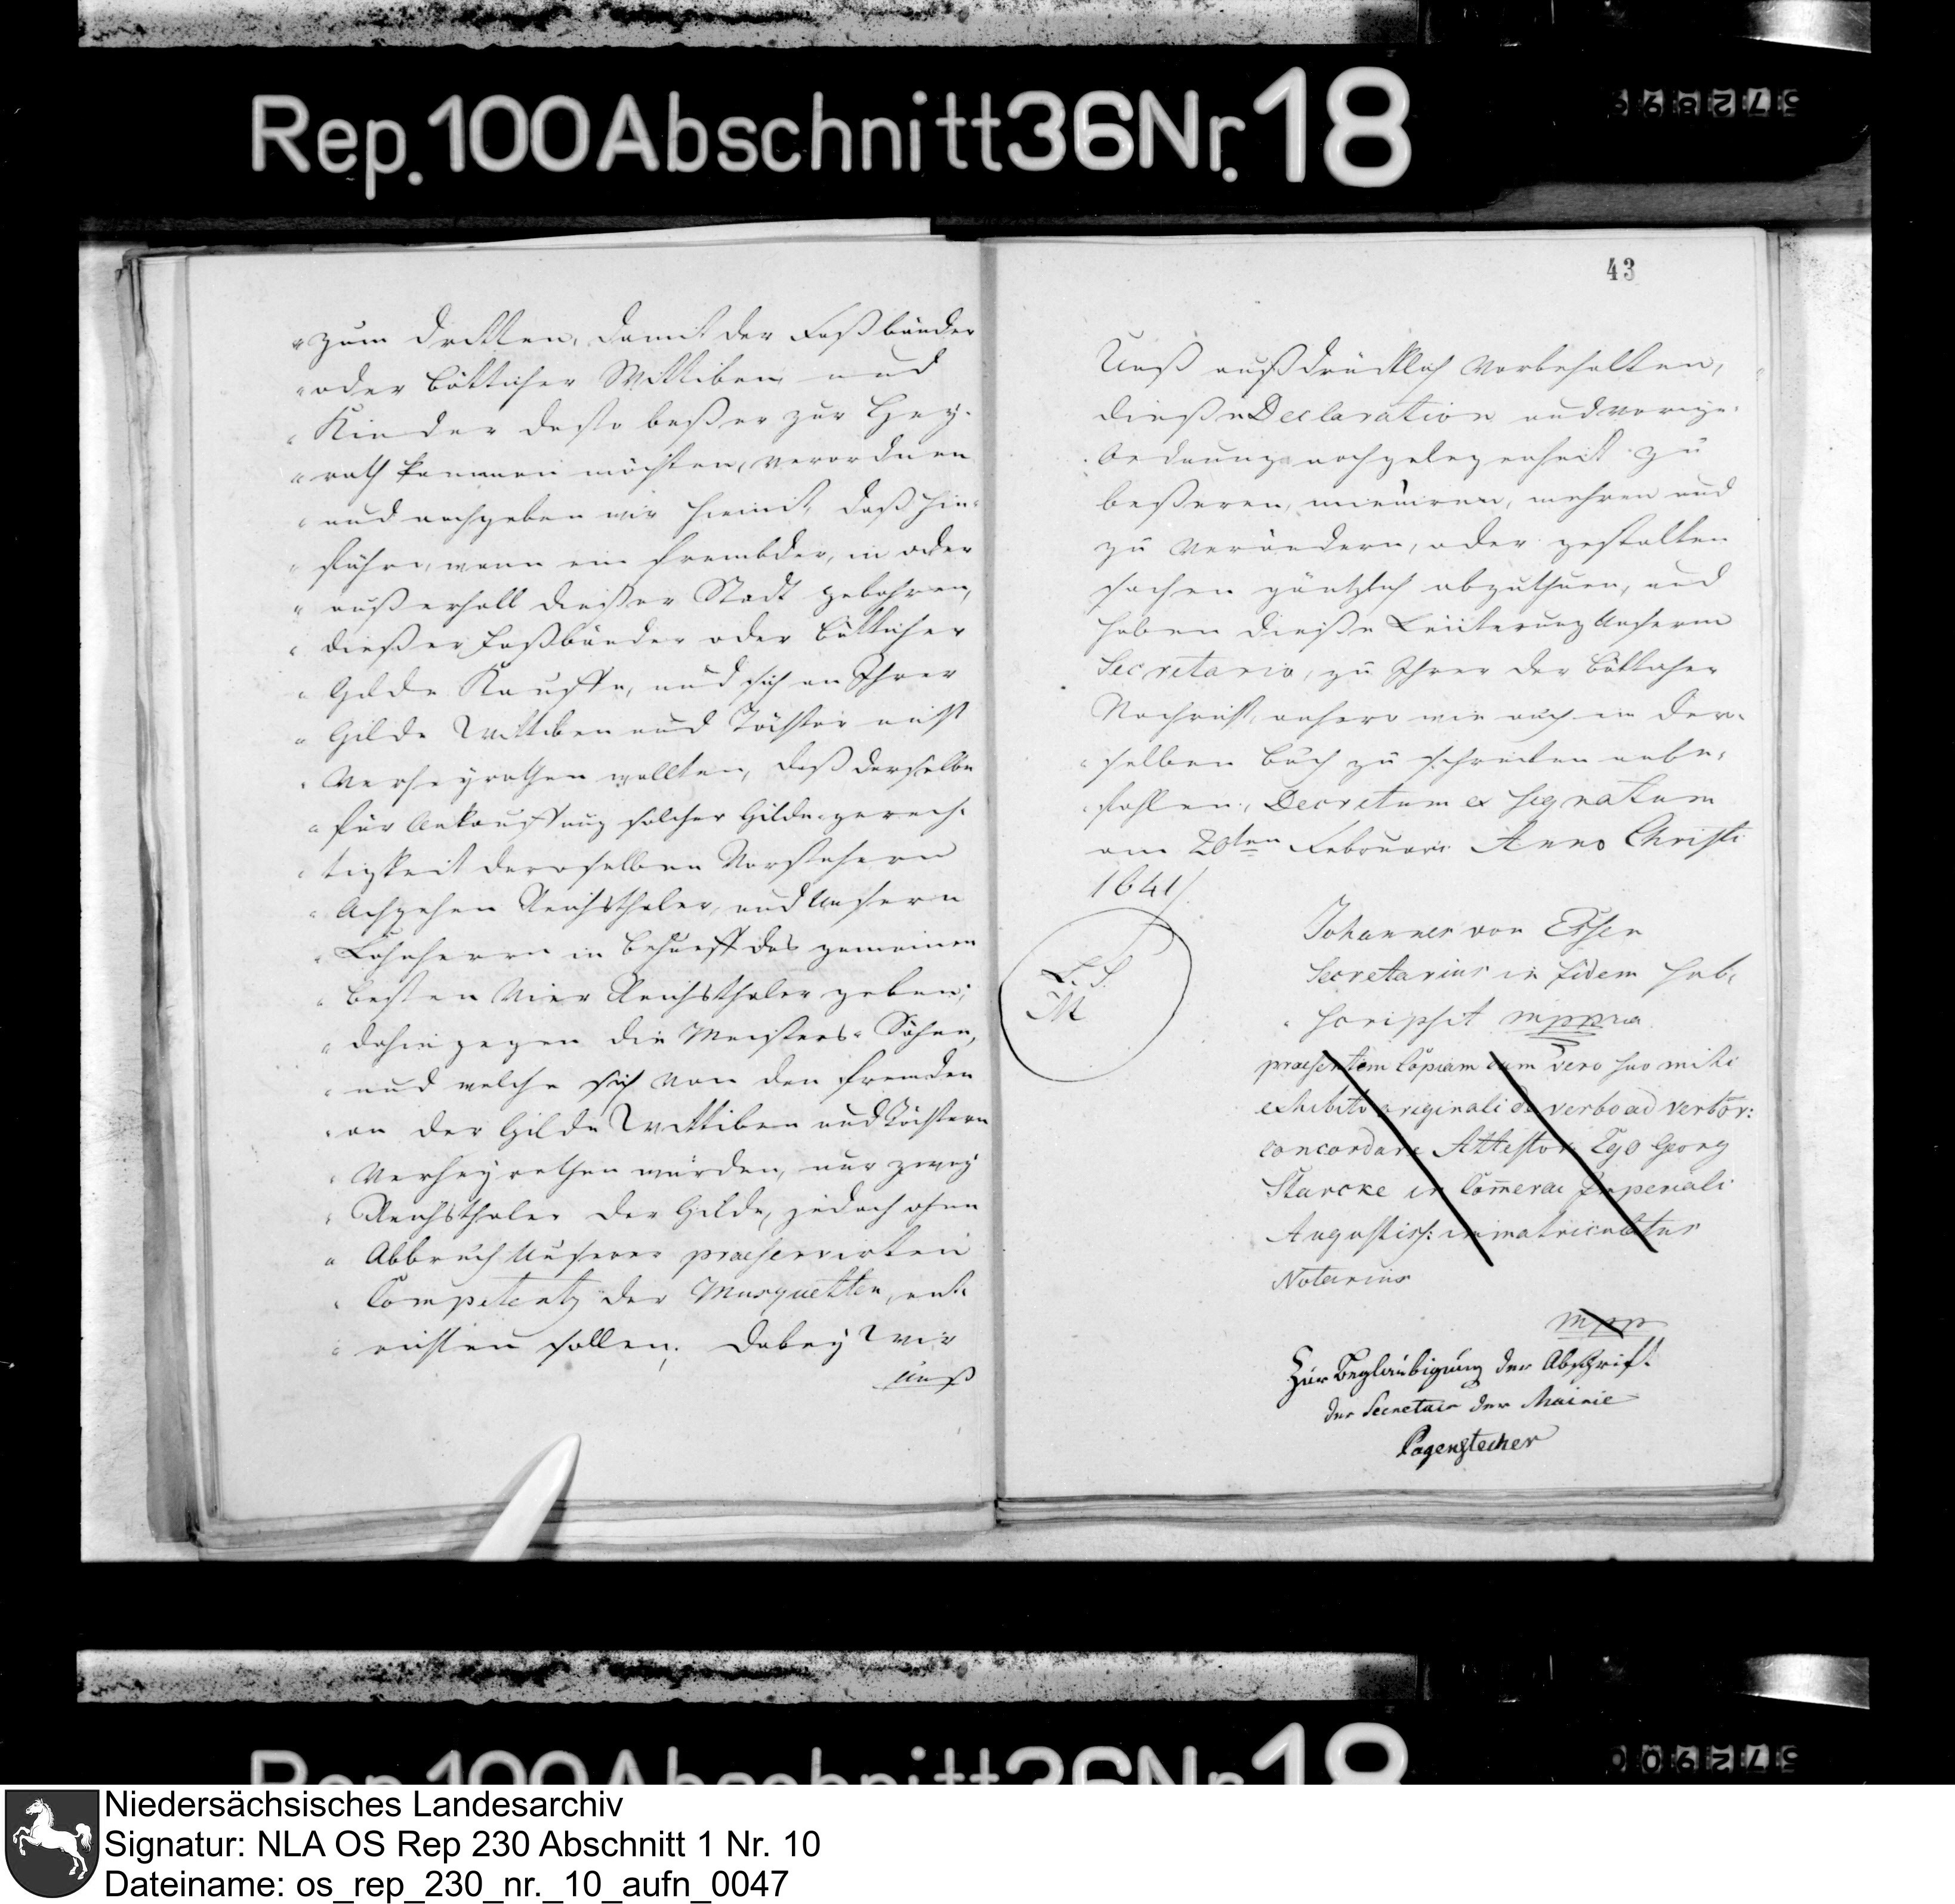 Rep. 100 Abschnitt 36 Nr. 18
43
zum dritten, damit der Faßbänder
oder Böttticher Wittiben und
Kinder desto beßer zur Hey-
rath kommen möchten, verordnen
und nachgeben wir hiemit, daß hin-
führo, wenn ein frembder, in oder
außerhalb dießer Stadt gebohren,
dießer Faßbänder oder Bötticher
Gilde Kauffe, und sich an Ihrer
Gilde Wittiben und Töchter nicht
Verheyrathen wollten, daß derselbe
für Ankauffung solcher Gildegerech-
tigkeit deroselben Vorstehern
Achzehen Reichsthaler, und Unsern
Lohnherrn in behueff des gemeinen
besten Vier Reichsthaler geben;
dahingegen die Meisters-Söhne,
und welche sich von den fremden
an der Gilde Wittiben und Töchtern
Verheyrathen würden, nur zwey
Reichsthaler der Gilde, jedoch ohne
Abbruch Unserer praeservirten
Competentz der Musquetten, ent-
richten sollen. Dabey Wir
Unß
Unß außdrücklich vorbehalten,
dieße Declaration und vorige
ordnung nach gelegenheit zu
beßeren, minüiren, mehren und
zu verändern, oder gestalten
sachen gäntzlich abzuthuen, und
haben dieße Leüterung Unserm
Secretario, zu Ihrer der Bötticher
Nachricht, anhero wie auch in der-
selben Buch zu schreiben anbe-
fohlen, Decretum et signatum
am 20ten Februari Anno Christi
1641
L. S.
M
Johannes von Essen
Secretarius in fidem sub-
scripsit mppria
praesentem Copiam cum vero suo mihi
exhibito originali de verbo ad verbo:
concordare Attestor Ego Georg
Starcke in Camerae Imperiali
Augustiss: immatriculatus
Notarius
mpp
Zur Beglaubigung der Abschrift
der Secretair der Mairie
Pagenstecher
Rep. 100 Abschnitt 36 Nr. 18
Niedersächsisches Landesarchiv
Signatur: NLA OS Rep 230 Abschnitt 1 Nr. 10
Dateiname: os_rep_230_nr._10_aufn_0047